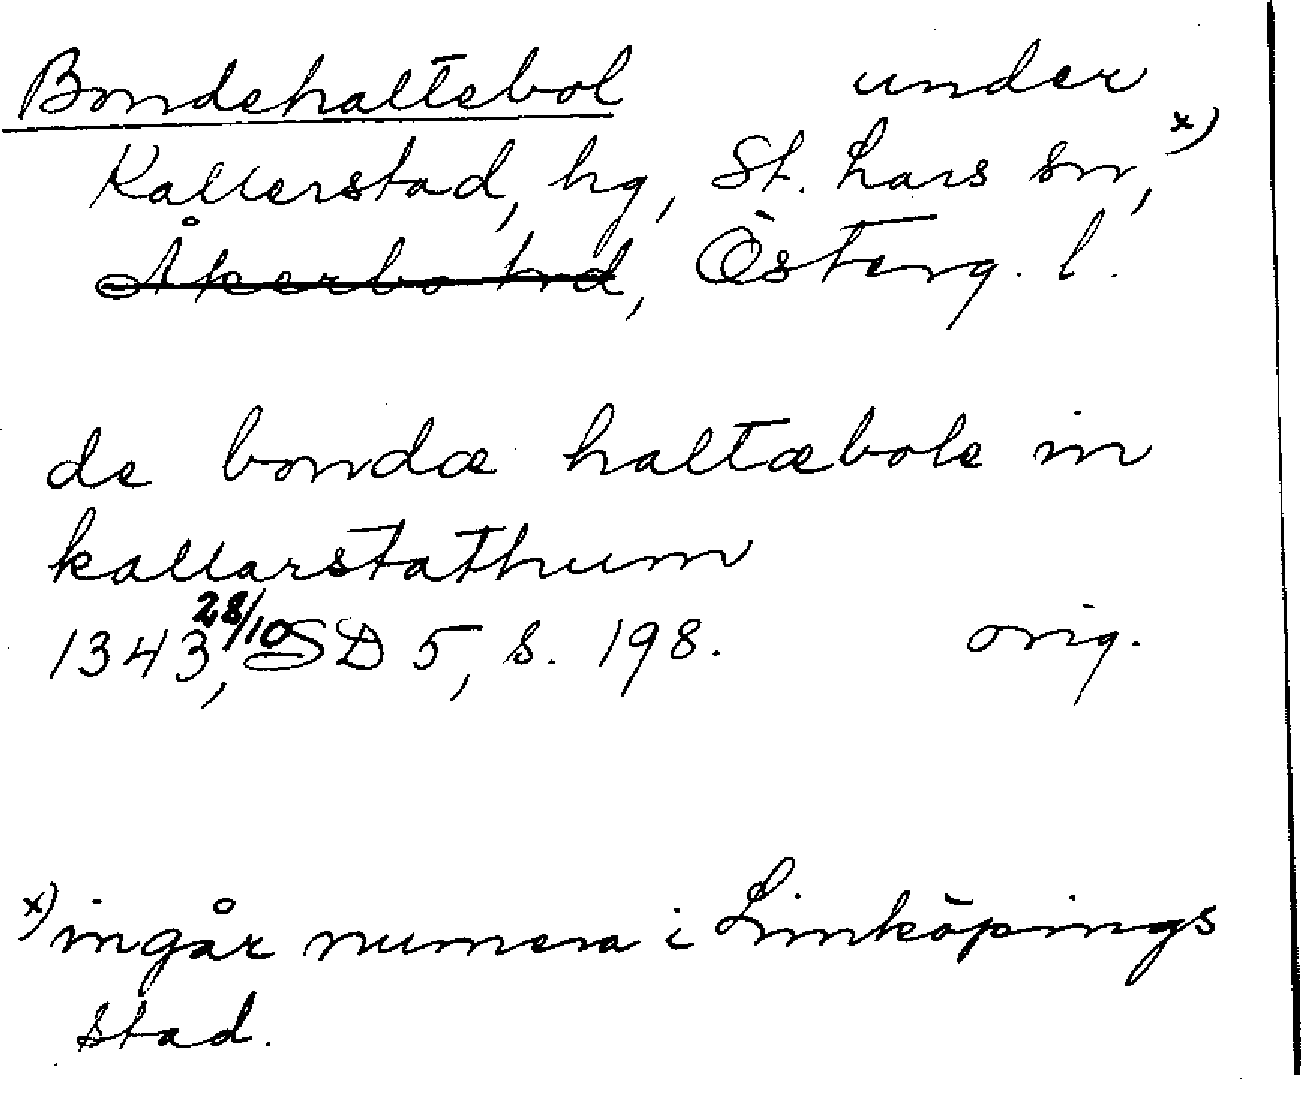 Bondehaltebol under
Kallerstad, hg, St. Lars sn, x)
Åkerbo hd, Österg. l.
de bondæ haltæbole in
kallarstathum
1343 28/10, SD 5, s. 198. orig.
x) ingår numera i Linköpings
stad.